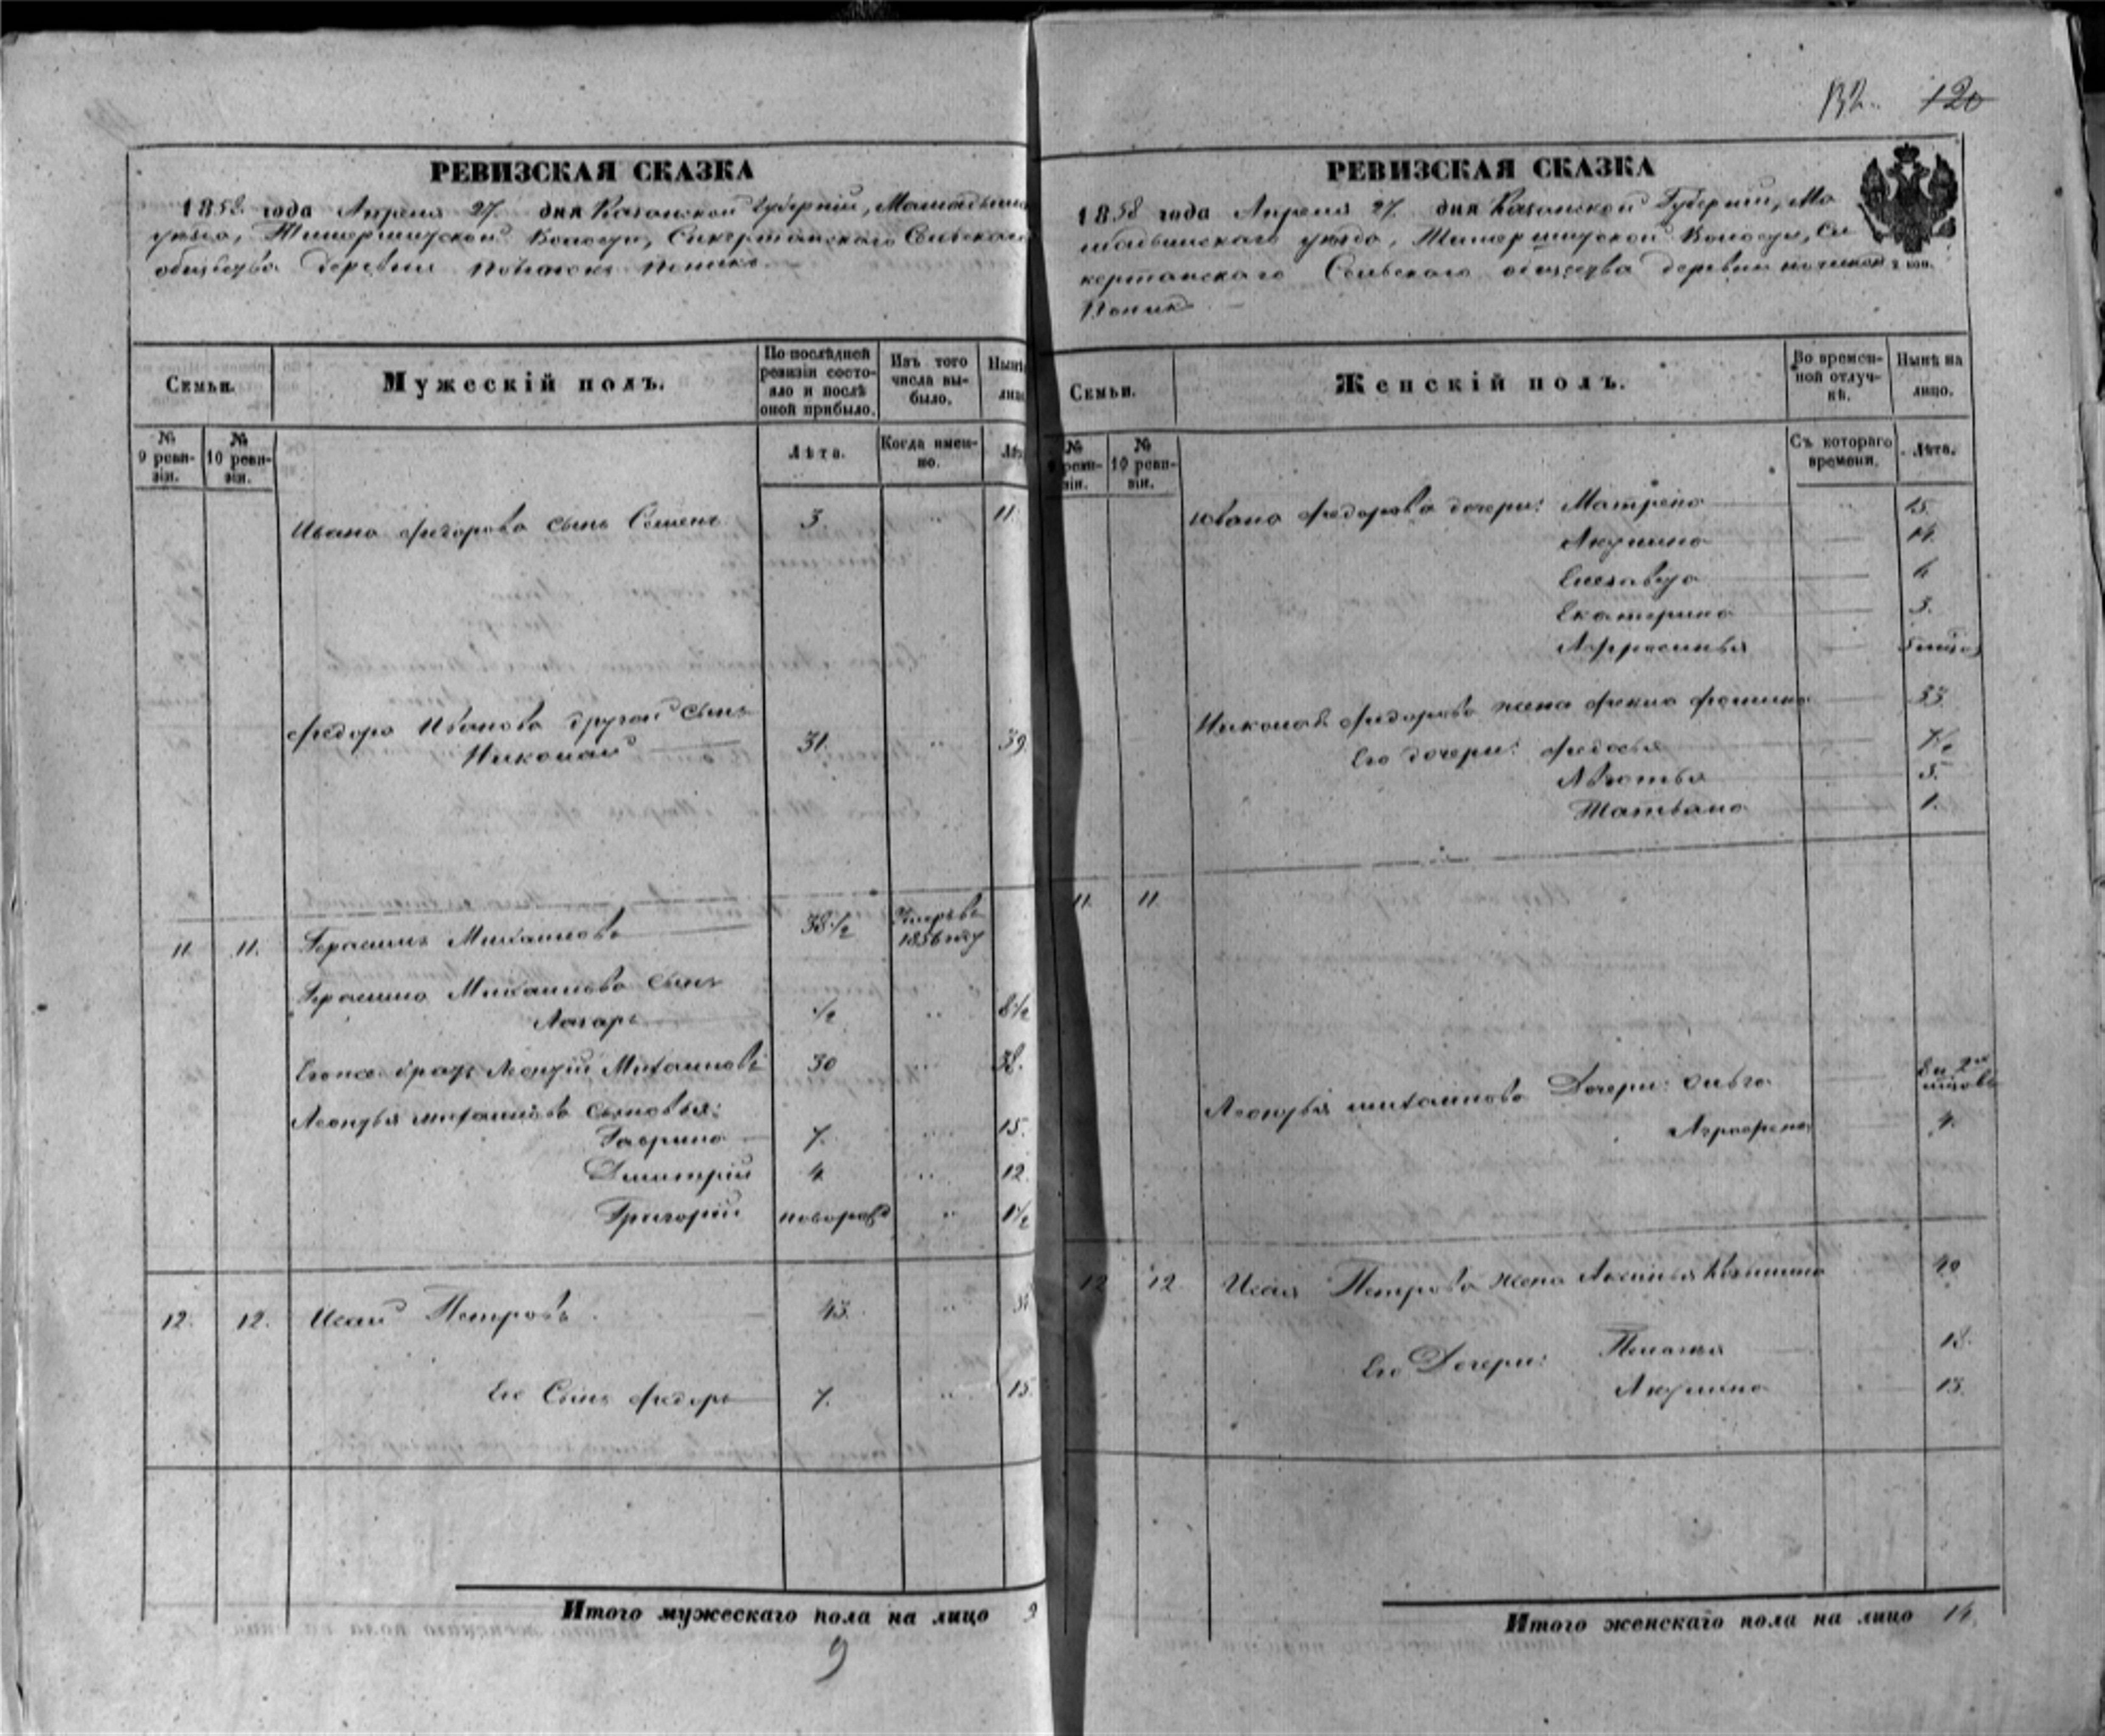 132. 120
РЕВИЗСКАЯ СКАЗКА
1858 года Апреля 27 дня Казанской Губернии, Мамадыш
уезда, Волости, Сикертанского Сельского
общества деревни
Семьи.
Мужескій полъ.
По послѣдней ревизіи состояло и послѣ оной прибыло.
Изъ того числа выбыло.
Нынѣ
лицо
№ 9 ревизіи.
№ 10 ревизіи.
Лѣта.
Когда именно.
Лѣт
Ивана Федорова сынъ Семенъ 3. " 11.
Федора Иванова другой сынъ
Николай 31. " 39.
11. 11. Герасимъ Михайловъ 38½ Умеръ въ
1856 году
Герасима Михайлова сынъ
Лазарь ½ " 8½
Егоже братъ Леонтій Михайловъ 30 " 38.
Леонтья Михайлова сыновья:
Гаврило 7. " 15.
Дмитрій 4 " 12.
Григорій новорожд " 1½
12. 12. Исай Петровъ 43. "
Его Сынъ Федоръ 7. " 15.
Итого мужескаго пола на лицо 9
9
РЕВИЗСКАЯ СКАЗКА
1858 года Апреля 27 дня Казанской Губернии, Ма
мадышскаго уезда, Волости, Си
кертанскаго Сельскаго общества деревни починок
2 коп.
Семьи.
Женскій полъ.
Во временной отлучкѣ.
Нынѣ на лицо.
№ ревизіи.
№ 10 ревизіи.
Съ котораго времени.
Лѣта.
Ивана Федорова дочери: Матрена " 15.
Акулина 14.
Елизавета
Екатерина 3.
Афросинья
Николая Федорова жена Фекла Фомина 33
Его дочери: Федосья
Авдотья 5.
Татьяна 1.
11. 11.
Леонтья Михайлова Дочери: Ольга 8 и 2
мцовъ
Аграфена 4.
12 12. Исая Петрова жена Аксинья Козьмина 40
Его Дочери: Пелагея 18.
Акулина 13.
Итого женскаго пола на лицо 14.